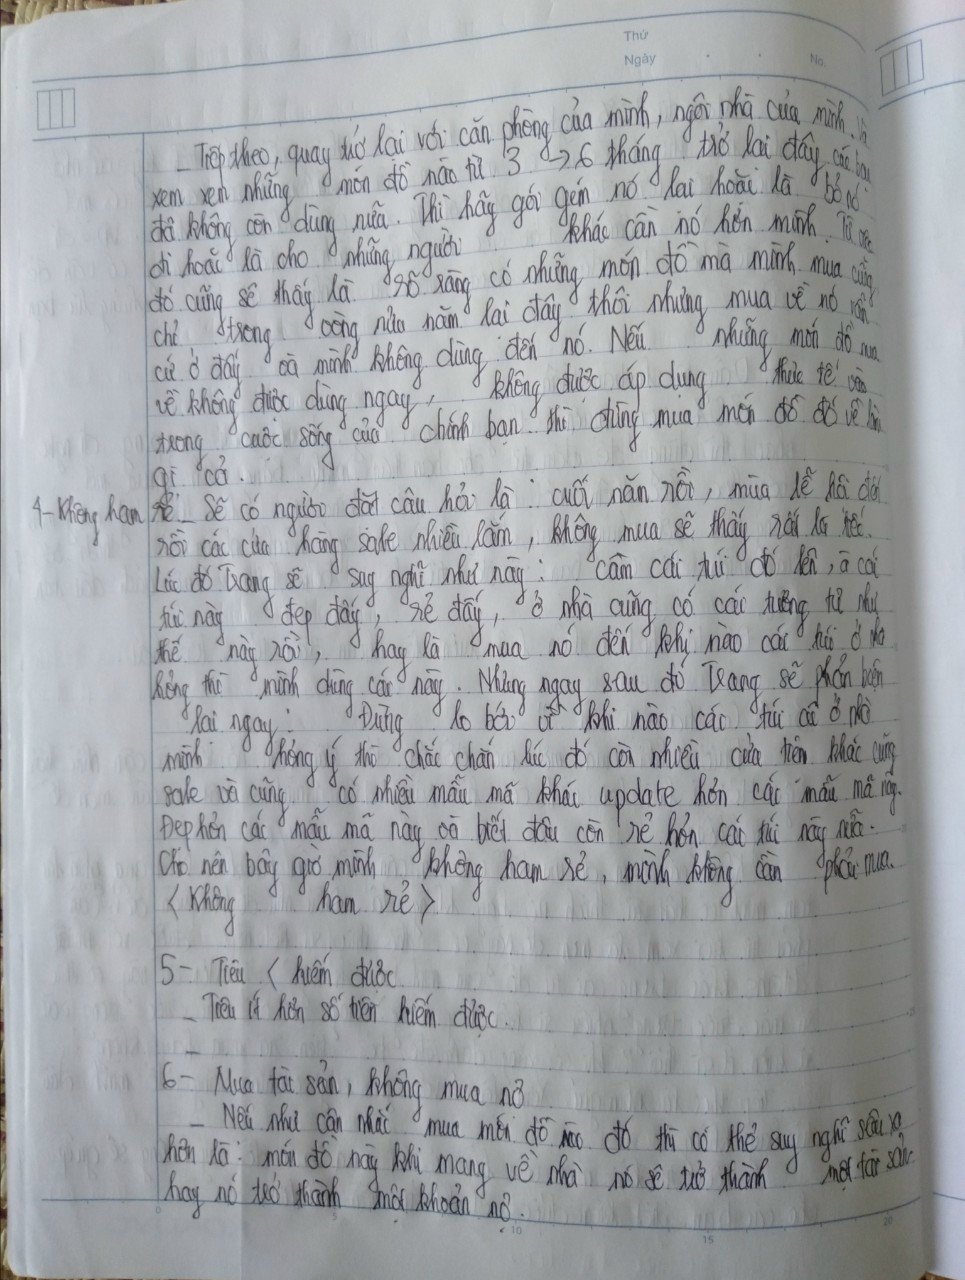 Thứ
Ngày No.
_ Tiếp theo, quay trở lại với căn phòng của mình, ngôi nhà của mình. Và
xem xen những món đồ nào từ 3 → 6 tháng trở lại đây các bạn
đã không còn dùng nữa. Thì hãy gói gém nó lại hoặc là bỏ nó
đi hoặc là cho những người khác cần nó hơn mình. Từ việc
đó cũng sẽ thấy là rõ ràng có những món đồ mà mình mua cũng
chỉ trong vòng nửa năm lại đây thôi nhưng mua về nó vẫn
cứ ở đấy và mình không dùng đến nó. Nếu những món đồ mua
về không được dùng ngay, không được áp dụng thực tế vào
trong cuộc sống của chính bạn thì đừng mua món đồ đó về làm
gì cả.
4- Không ham rẻ _ Sẽ có người đặt câu hỏi là: cuối năm rồi, mùa lễ hội đến
rồi các cửa hàng sale nhiều lắm, không mua sẽ thấy rất là tiếc.
Lúc đó Trang sẽ suy nghĩ như này: cầm cái túi đó lên, à cái
túi này đẹp đấy, rẻ đấy, ở nhà cũng có cái tương tự như
thế này rồi, hay là mua nó đến khi nào cái túi ở nhà
hỏng thì mình dùng cái này. Nhưng ngay sau đó Trang sẽ phản biện
lại ngay: Đừng lo bởi vì khi nào các túi cũ ở nhà
mình hỏng ý thì chắc chắn lúc đó còn nhiều cửa tiệm khác cũng
sale và cũng có nhiều mẫu mã khác update hơn các mẫu mã này.
Đẹp hơn các mẫu mã này và biết đâu còn rẻ hơn cái túi này nữa.
Cho nên bây giờ mình không ham rẻ, mình không cần phải mua.
< Không ham rẻ >
5- Tiêu < kiếm được
_ Tiêu ít hơn số tiền kiếm được.
_
6- Mua tài sản, không mua nợ
_ Nếu như cân nhắc mua món đồ nào đó thì có thể suy nghĩ sâu xa
hơn là: món đồ này khi mang về nhà nó sẽ trở thành một tài sản
hay nó trở thành một khoản nợ.
0 5 10 15 20